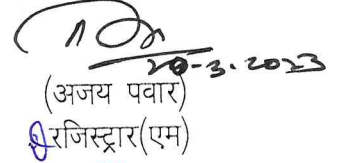 20-3-2023
(अजय पवार)
रजिस्ट्रार(एम)